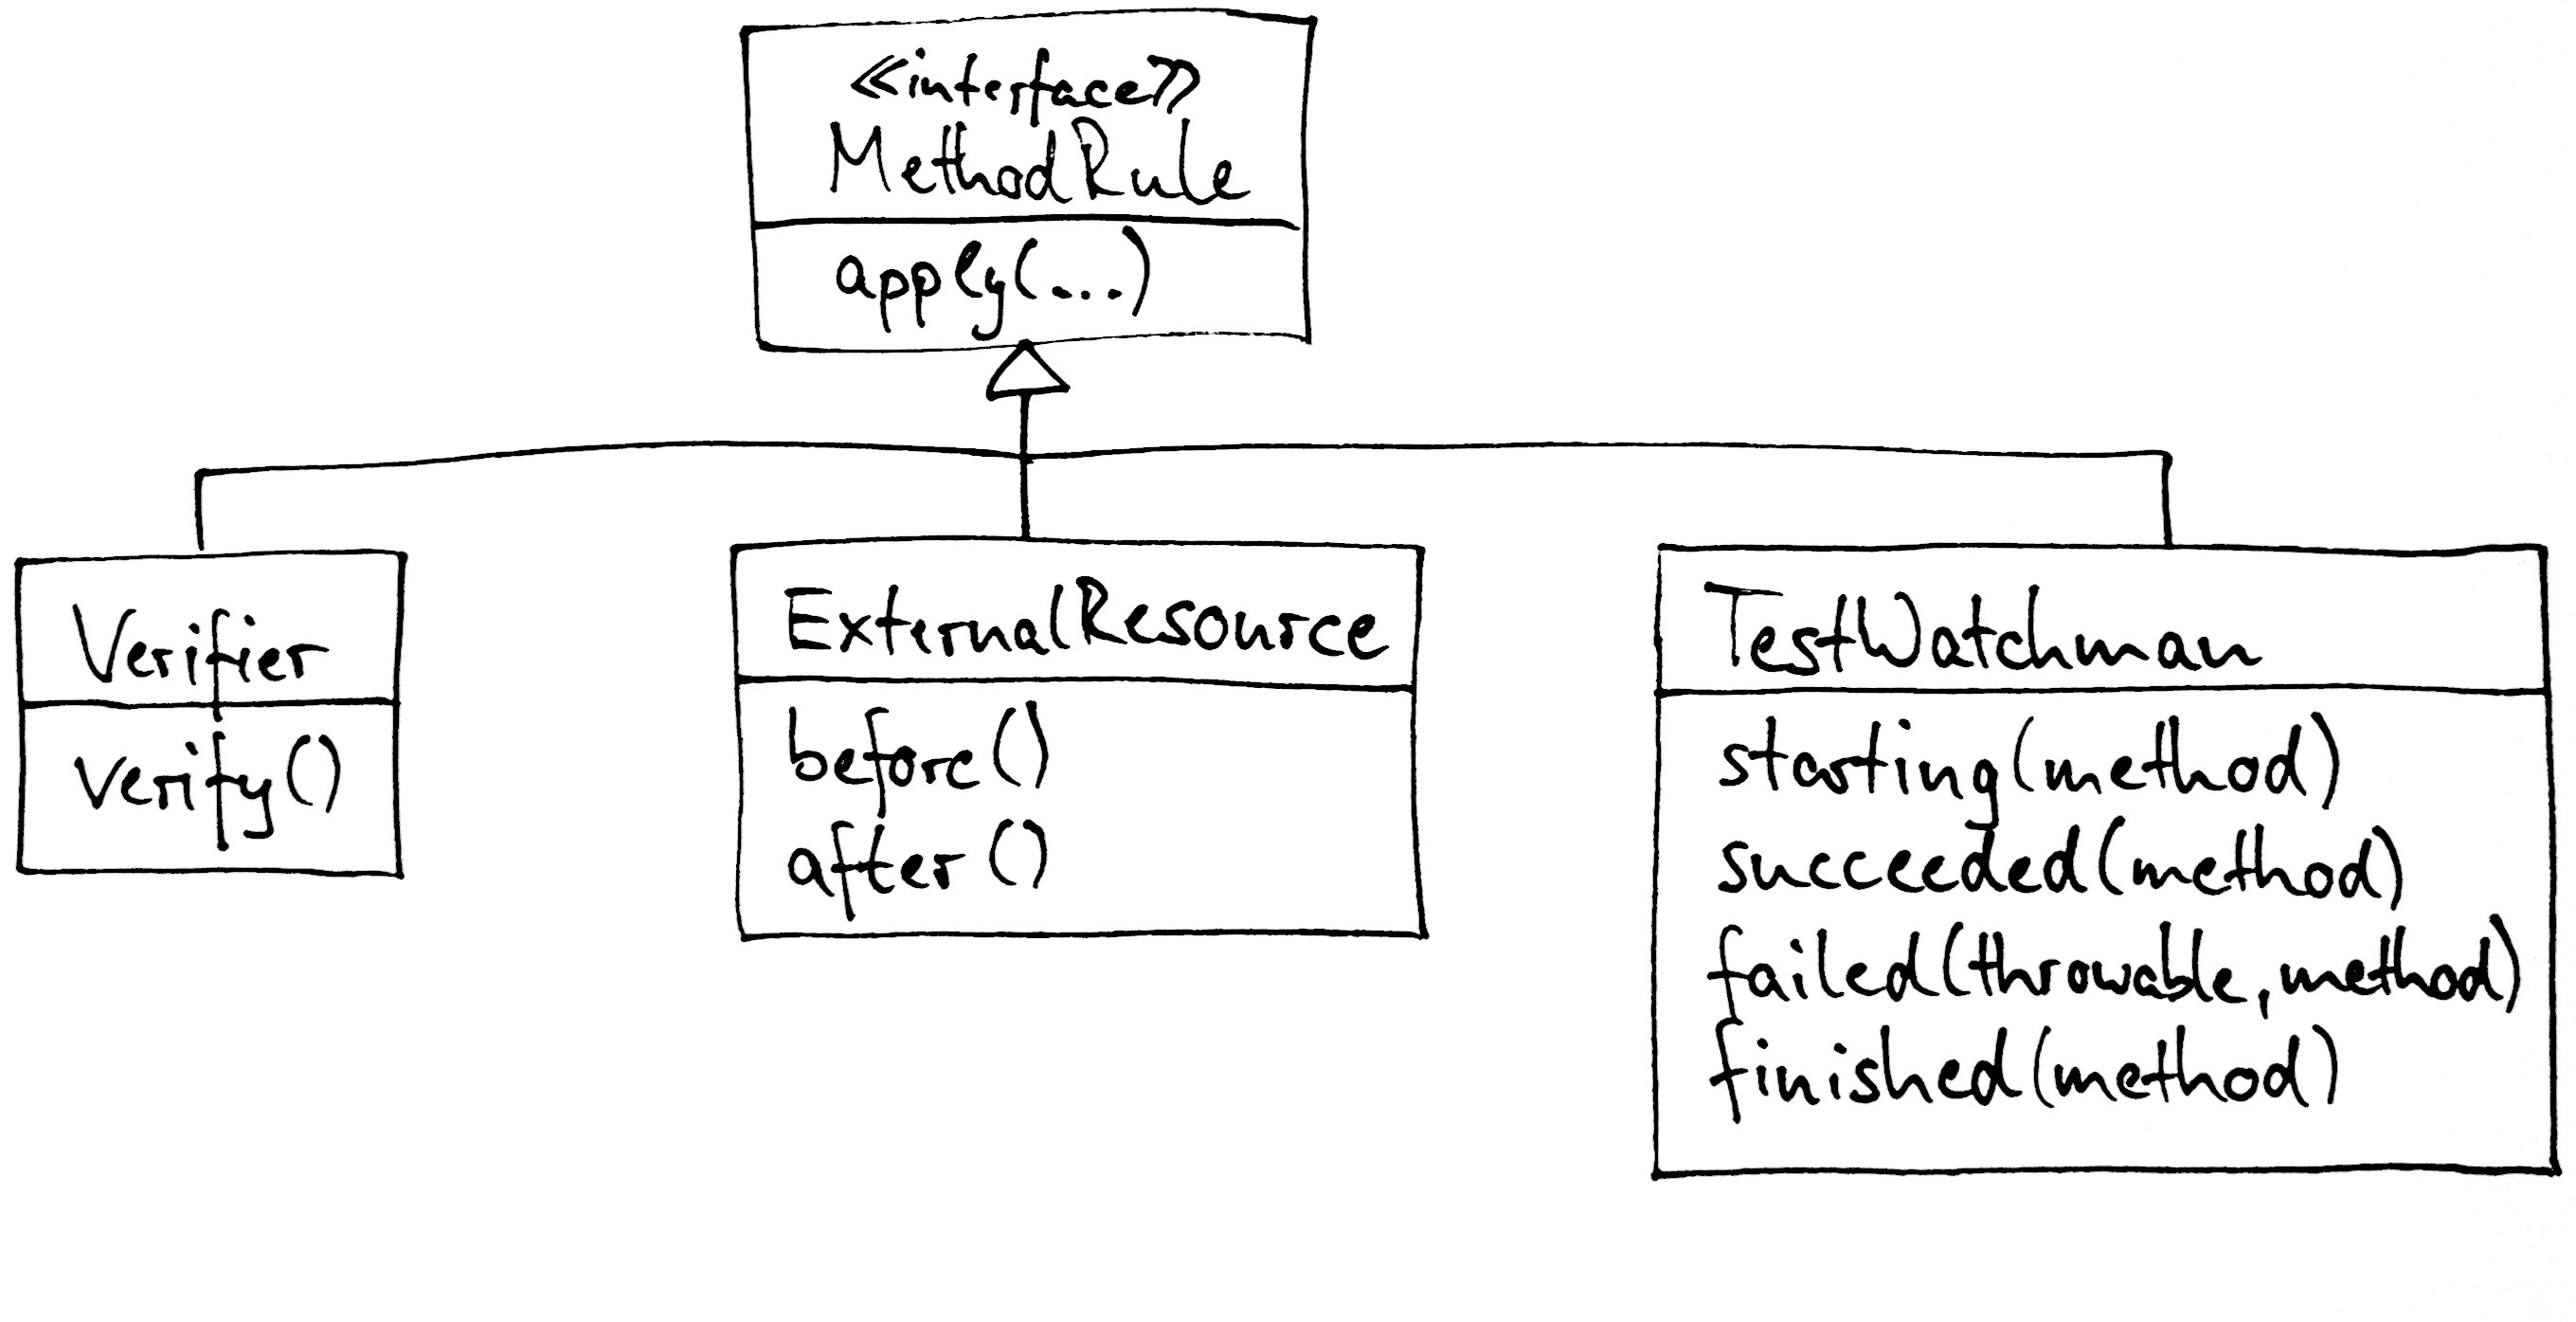 «interface»
MethodRule
apply(...)
Verifier
verify()
ExternalResource
before()
after()
TestWatchman
starting(method)
succeeded(method)
failed(throwable, method)
finished(method)